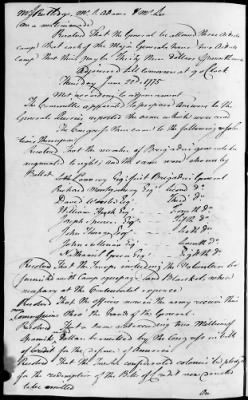 Mr. Ruttledge, Mr. S. Adams & Mr. Lee
Resolved That the General be allowed three Aids de
Camp that each of the Major Generals have two Aids de
Camp and that their pay be Thirty three dollars pr month
Adjourned till tomorrow at 9 o'Clock
Thursday June 22d 1775.
Met according to adjournment
The Committee appointed to prepare an Answer to the
General's Answer reported the same which were read
The Congress then came to the following resolu
Resolved That the number of Brigadiers general be
augmented to eight, and the same were chosen by
Ballot
Seth Pomroy Esqr. first Brigadier General
Richard Montgomery Esqr. second do.
David Wooster Esqr. Third do.
William Heath Esqr. Fourth do.
Joseph Spencer Esqr. Fifth do.
John Thomas Esqr. Sixth do.
John Sullivan Esqr. Seventh do.
Nathaniel Green Esqr. Eighth do.
Resolved That the Troops including the Volunteers be
furnished with Camp equipage and Blankets, where
necessary at the Continental expence
Resolved That the officers now in the army receive their
Commissions thro' the hands of the General
Resolved That a sum not exceeding two Millions of
Spanish dollars be emitted by the Congress in bills
of Credit for the defence of America
Resolved That the twelve confederated colonies be pledged
for the redemption of the Bills of Credit now directed
to be emitted
On